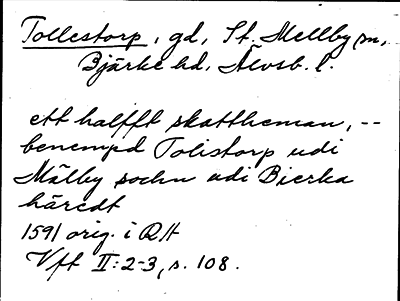 Tollestorp, gd, St. Mellby sn,
Bjärke hd, Älvsb. l.
ett halfft skattheman, --
benempd Tolistorp udi
Mälby sochn udi Bierka
häredt
1591 orig. i RA
Vft II: 2-3, s. 108.